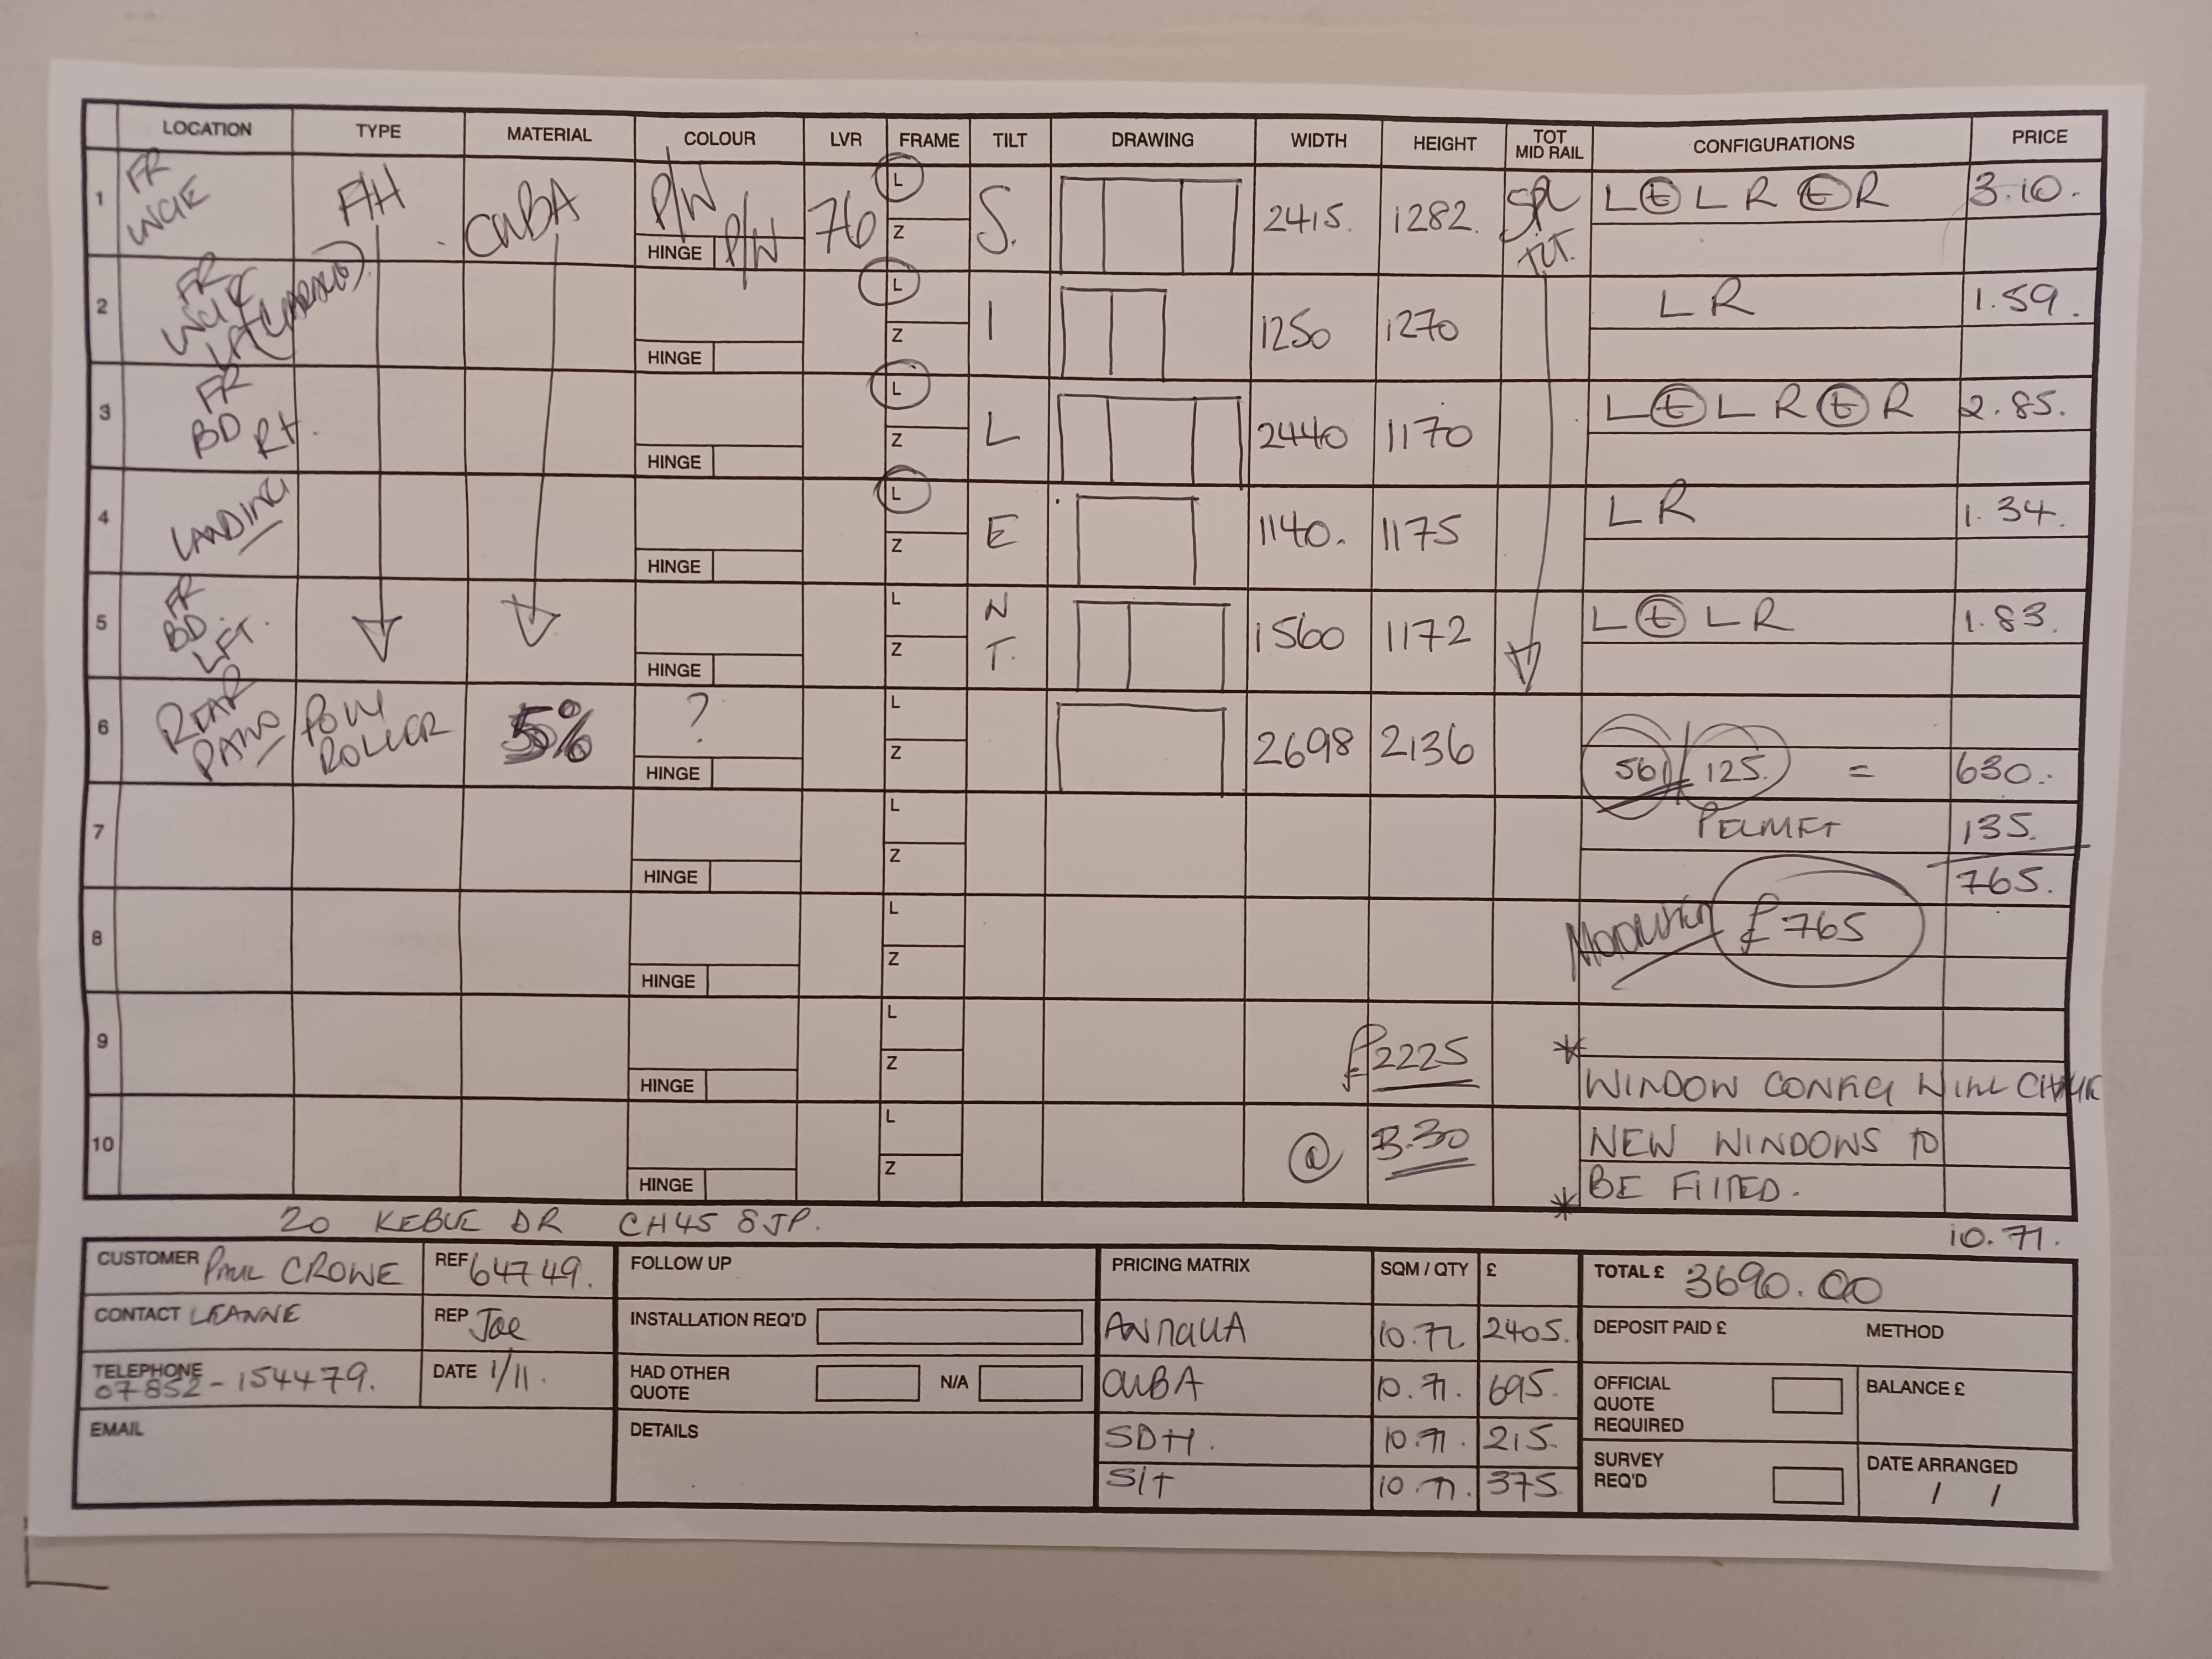 LOCATION TYPE MATERIAL COLOUR LVR FRAME TILT DRAWING WIDTH HEIGHT TOT MID RAIL CONFIGURATIONS PRICE
1 FR LNGE F/H CUBA P/W HINGE P/W 76 L Z S. 2415. 1282. SPL TLT. L t L R t R 3.10.
2 FR LNGE HINGE L Z I 1250 1270 L R 1.59.
3 FR BD RH. HINGE L Z L 2440 1170 L t L R t R 2.85.
4 LANDING HINGE L Z E 1140. 1175 L R 1.34.
5 FR BD LFT. HINGE L Z N T. 1560 1172 L t L R 1.83.
6 REAR PATIO ROLLER 5% ? HINGE L Z 2698 2136 561/125. = 630.
7 HINGE L Z PELMET 135.
765.
8 HINGE L Z £765
9 HINGE L Z £2225 *
WINDOW CONFIG WILL
10 HINGE L Z @ 3.30 NEW WINDOWS TO
BE FITTED. *
20 KEBLE DR CH45 8JP. 10.71.
CUSTOMER PAUL CROWE REF 64749. FOLLOW UP PRICING MATRIX SQM / QTY £ TOTAL £ 3690.00
CONTACT LEANNE REP Joe INSTALLATION REQ'D ANTIGUA 10.71 2405. DEPOSIT PAID £ METHOD
TELEPHONE 07852-154479. DATE 1/11. HAD OTHER QUOTE N/A CUBA 10.71. 695. OFFICIAL QUOTE REQUIRED BALANCE £
EMAIL DETAILS SDH. 10.71. 215.
S/T 10.71. 375 SURVEY REQ'D DATE ARRANGED / /